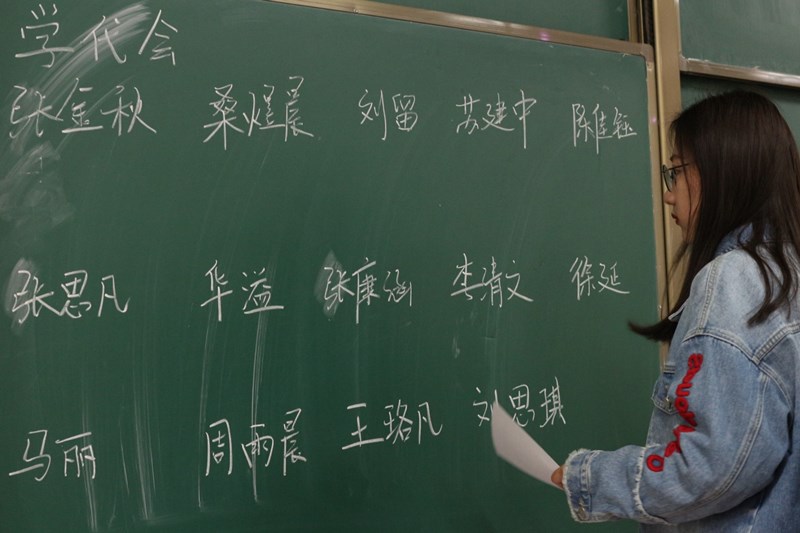 学代会
张金秋 桑煜晨 刘留 苏建中 陈佳钰
张思凡 华溢 张康涵 李清文 徐延
马丽 周雨晨 王珞凡 刘思琪